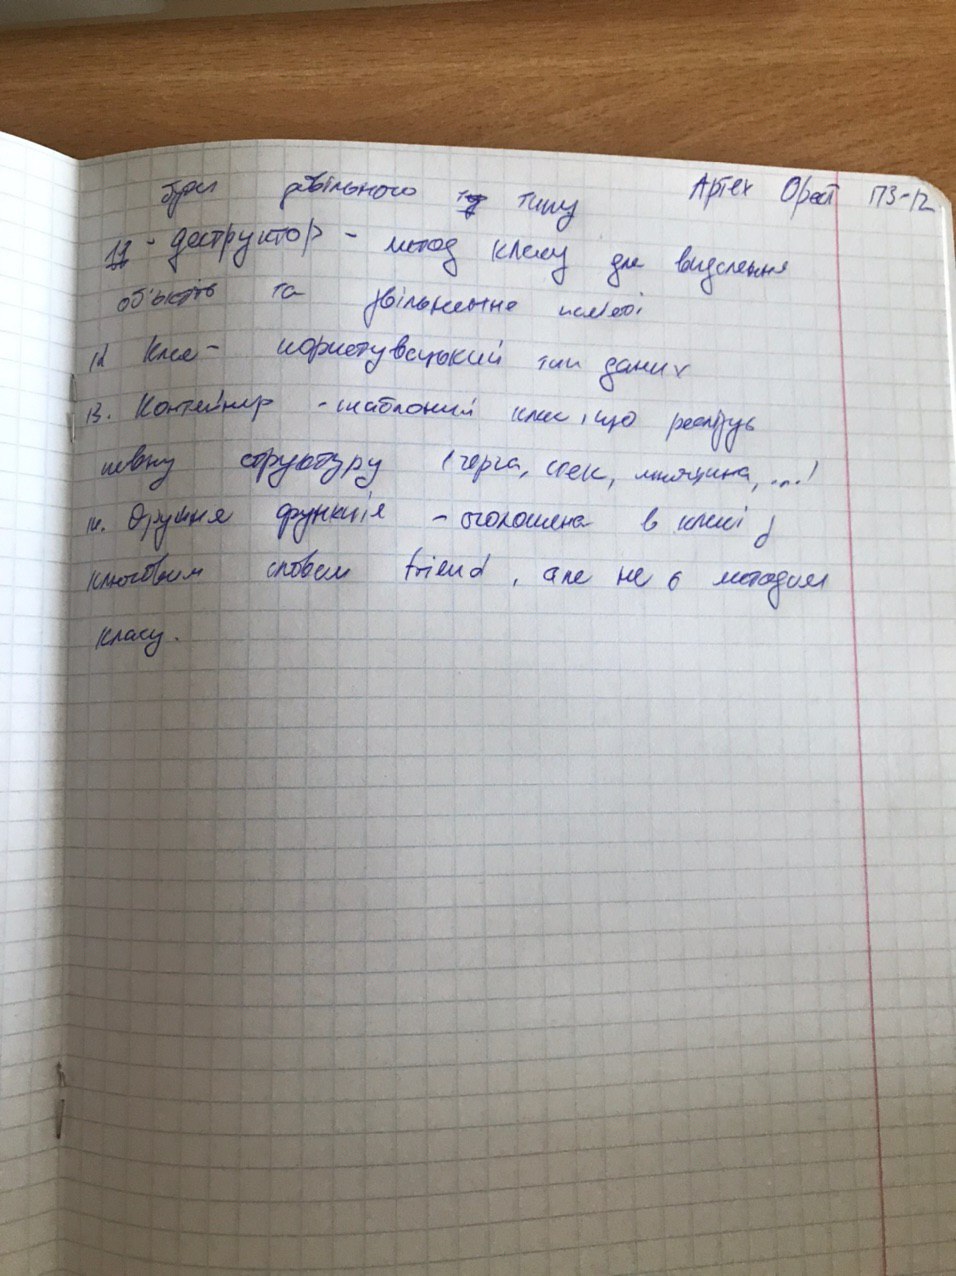 бути довільного типу Артех Орест ПЗ-12
11 - Деструктор - метод класу для видалення
об'єктів та звільнення пам'яті
12 Клас - користувацький тип даних
13. Контейнер - шаблоний клас, що реалізує
певну структуру (черга, стек, множина, ...)
14. Дружня функція - оголошена в класі з
ключовим словом friend, але не є методом
класу.